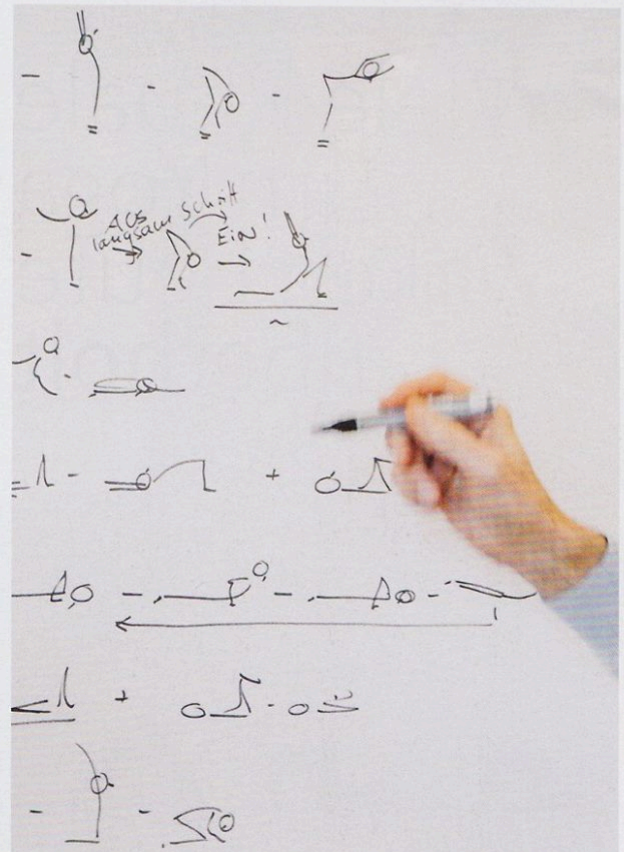 AUS
langsam Schritt
EIN!